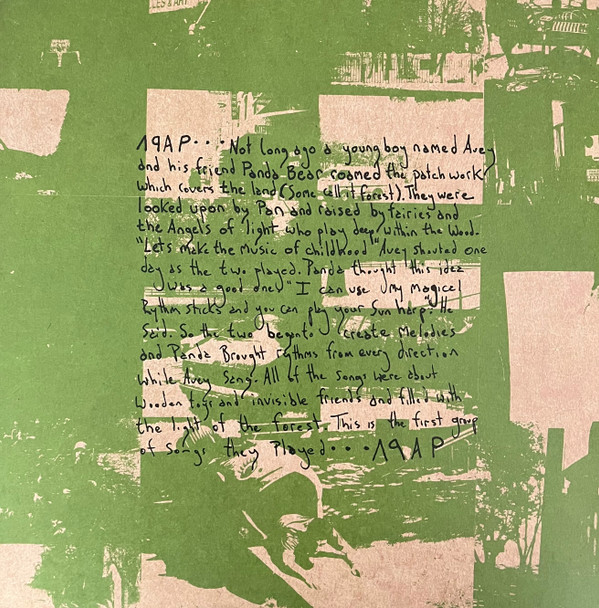 LES & ART
19AP... Not long ago a young boy named Avey
and his friend Panda Bear roamed the patch work
which covers the land (some call it forest). They were
looked upon by Pan and raised by fairies and
the Angels of light who play deep within the Wood.
"Lets make the Music of childhood" Avey shouted one
day as the two played. Panda thought (this idea
was a good one) "I can use my magical
Rythm sticks and you can play your Sun harp." He
Said. So the two began to create Melodies
and Panda Brought rythms from every direction
while Avey Sang. All of the songs were about
wooden toys and invisible friends and filled with
the light of the forest. This is the first group
of Songs they Played... 19AP